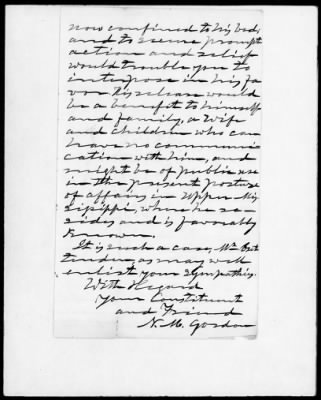 now confined to his bed,
and to secure prompt
action and relief
would trouble you to
interpose in his fa
vor. His release would
be a benefit to himself
and family, a wife
and children who can
have no communi
cation with him, and
might be of public use
in the present posture
of affairs in Upper Mis
sissippi, where he re-
sides and is favorably
known.
It is such a case, Mr. Crit
tenden, as may well
enlist your sympathies.
With Regard
Your Constituent
and Friend
N. M. Gordon